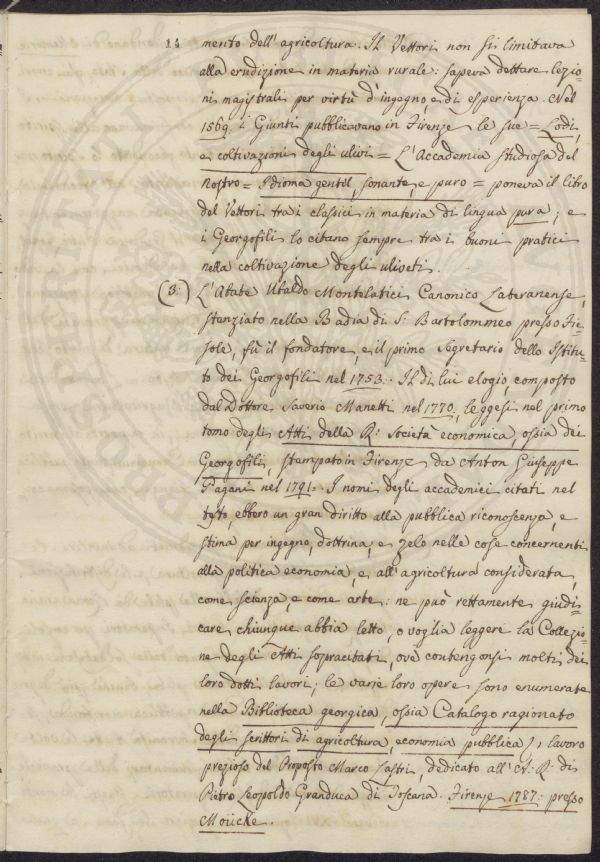 14 mento dell'agricoltura. Il Vettori non si limitava
alla erudizione in materia rurale: sapeva dettare lezio=
ni magistrali per virtù d'ingegno, e di esperienza. Nel
1569. i Giunti pubblicavano in Firenze le sue = Lodi
e coltivazioni degli ulivi = L'Accademia studiosa del
nostro = Idioma gentil, sonante, e puro = poneva il libro
del Vettori tra i classici in materia di lingua pura; e
i Georgofili lo citano sempre tra i buoni pratici
nella coltivazione degli uliveti.
(3.) L'Abate Ubaldo Montelatici Canonico Lateranense,
stanziato nella Badia di S: Bartolommeo presso Fie=
sole, fù il fondatore, e il primo Segretario dello Istitu=
to dei Georgofili nel 1753. Il di lui elogio, composto
dal Dottore Saverio Manetti nel 1770, leggesi nel primo
tomo degli Atti della R: Società economica, ossia dei
Georgofili, stampato in Firenze da Anton Giuseppe
Pagani nel 1791. I nomi degli accademici citati nel
testo, ebbero un gran diritto alla pubblica riconoscenza, e
stima per ingegno, dottrina, e zelo nelle cose concernenti
alla politica economia, e all'agricoltura considerata,
come scienza, e come arte: ne può rettamente giudi=
care, chiunque abbia letto, o voglia leggere la Collezio=
ne degli Atti sopracitati, ove contengonsi molti dei
loro dotti lavori; le varie loro opere sono enumerate
nella Biblioteca georgica, ossia Catalogo ragionato
degli scrittori di agricoltura, economia pubblica &, lavoro
prezioso del Proposto Marco Lastri, dedicato all'A: R: di
Pietro Leopoldo Granduca di Toscana. Firenze 1787: presso
Moücke.